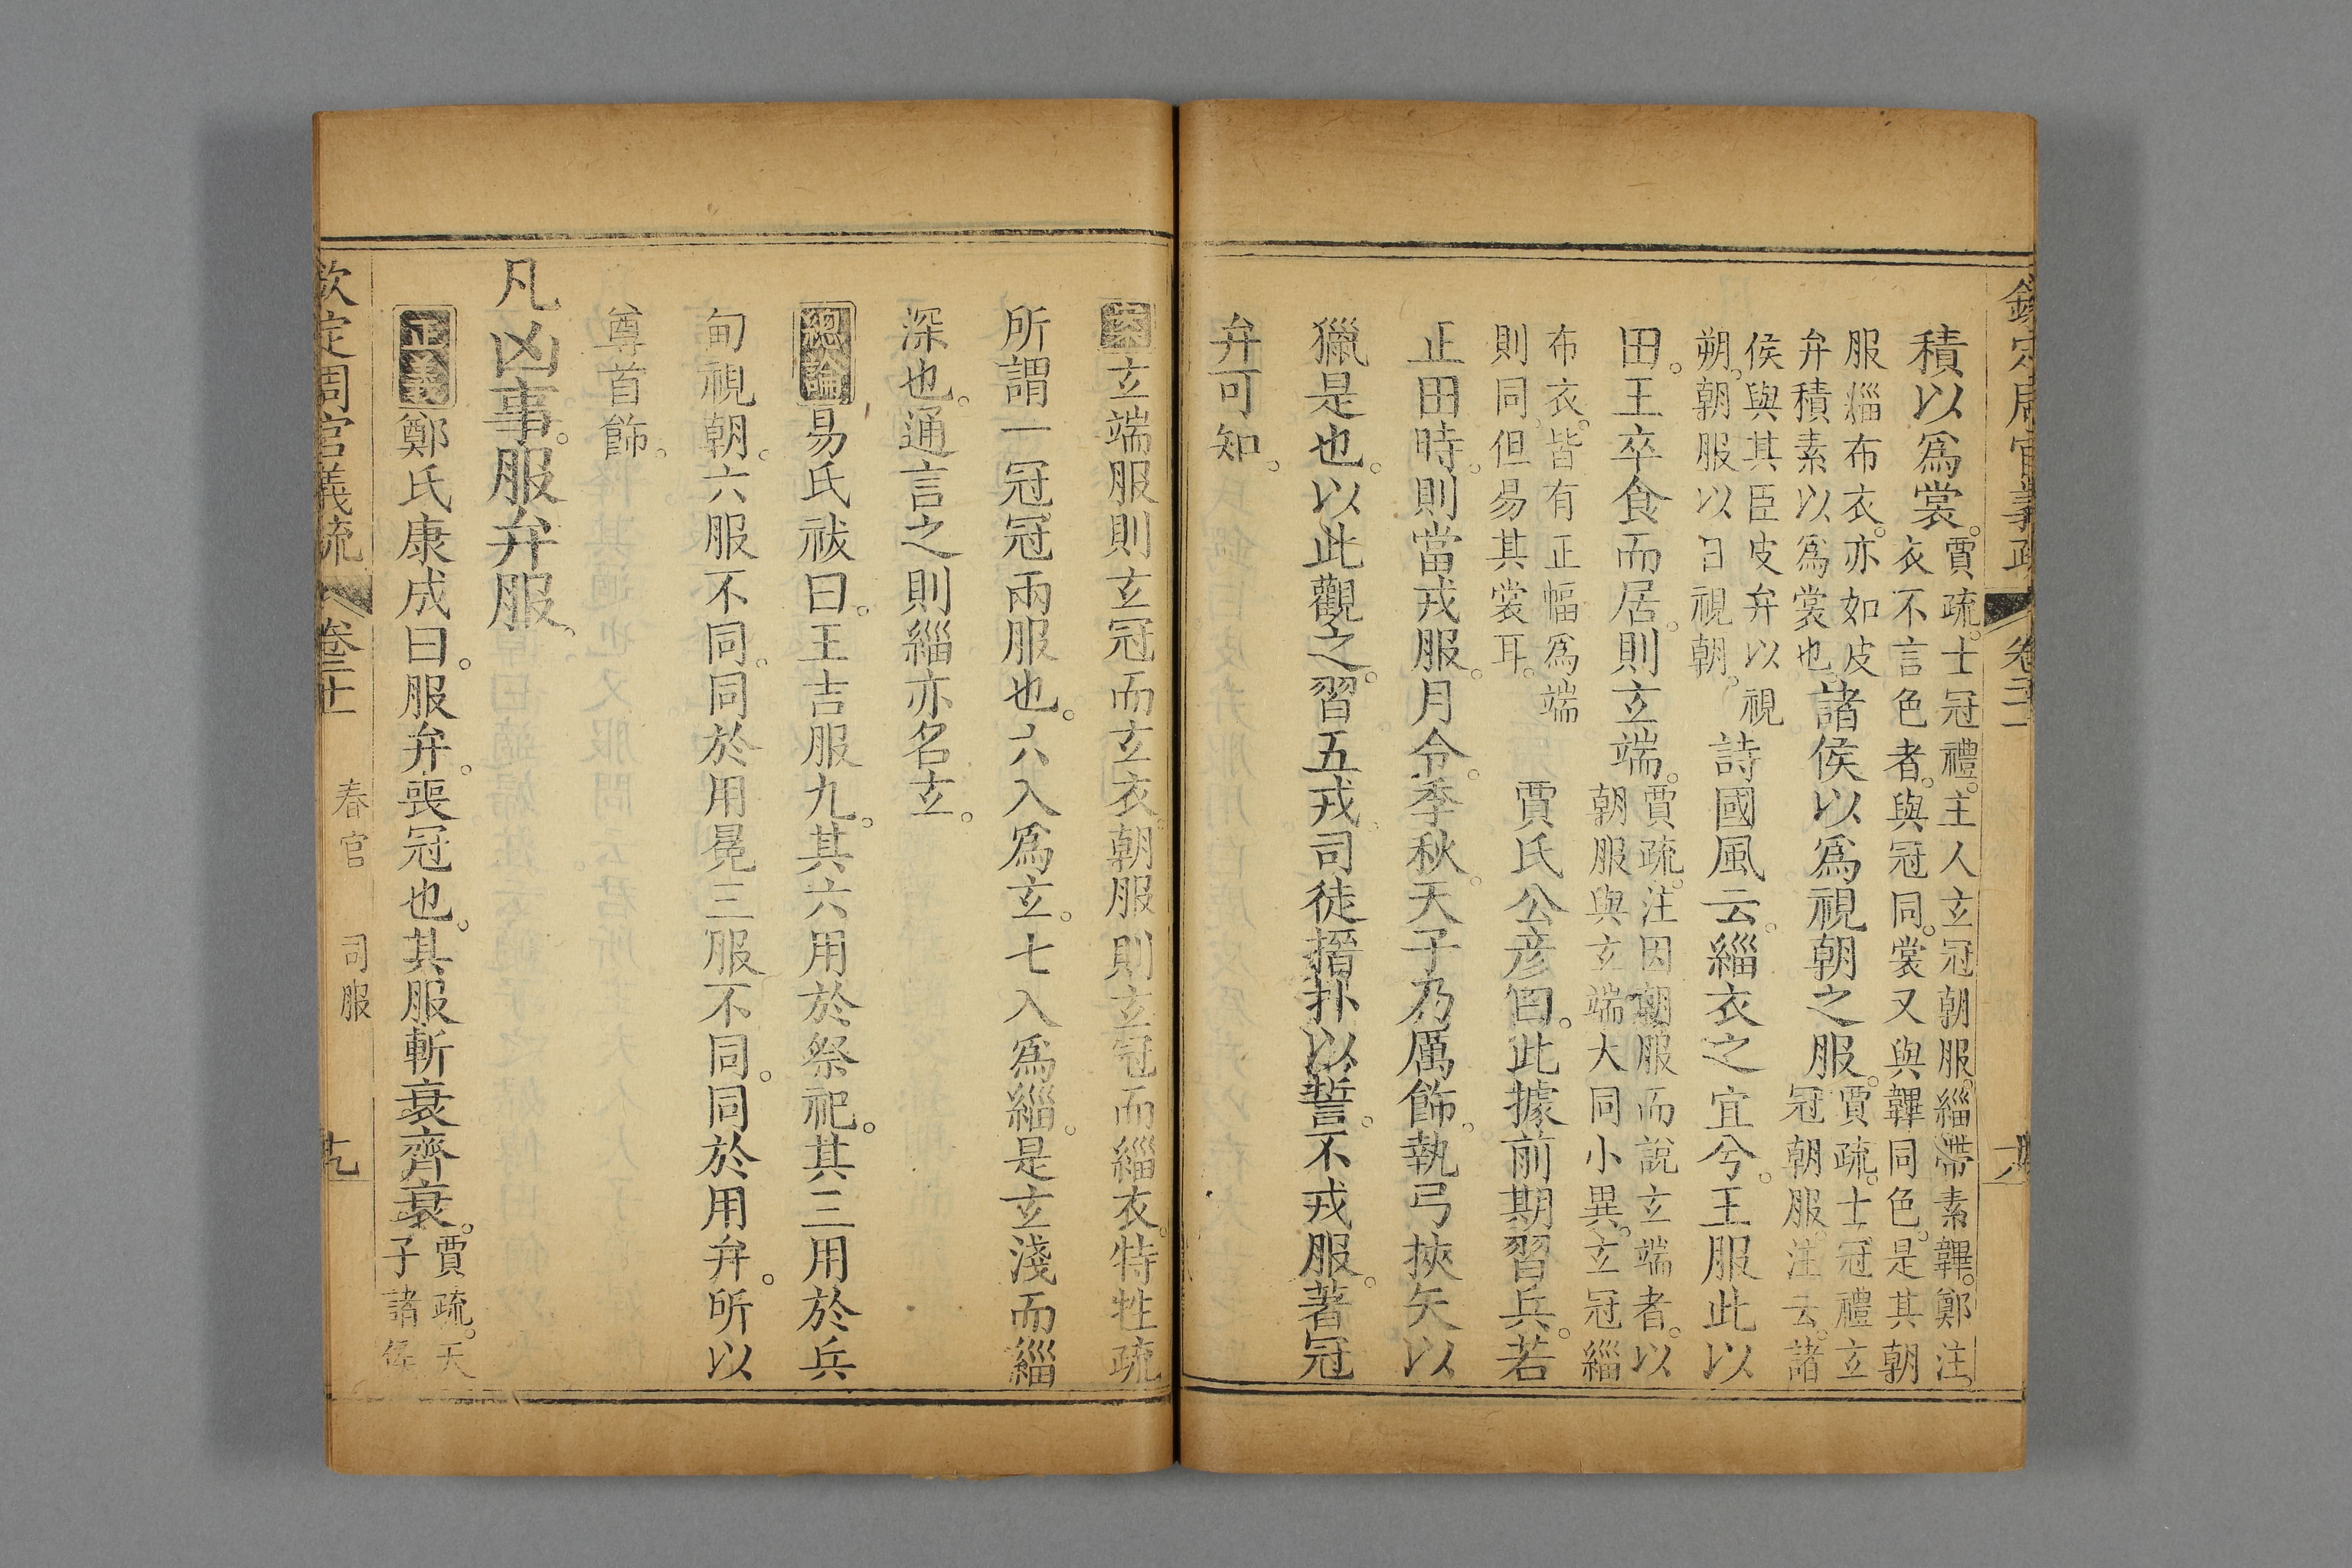 積以為裳。賈疏。士冠禮。主人玄冠朝服。緇帶素韠。鄭注。
衣不言色者。與冠同。裳又與韠同色。是其朝
服緇布衣。亦如皮
弁積素以為裳也。諸侯以為視朝之服。賈疏。士冠禮玄
冠朝服。注云。諸
侯與其臣皮弁以視
朔。朝服以日視朝。詩國風云。緇衣之宜兮。王服此以
田。王卒食而居。則玄端。賈疏。注因朝服而說玄端者。以
朝服與玄端大同小異。玄冠緇
布衣。皆有正幅為端
則同。但易其裳耳。賈氏公彥曰。此據前期習兵。若
正田時。則當戎服。月令。季秋。天子乃厲飾。執弓挾矢以
獵是也。以此觀之。習五戎。司徒搢扑以誓。不戎服。著冠
弁可知。
案玄端服則玄冠而玄衣。朝服則玄冠而緇衣。特牲疏
所謂一冠冠兩服也。六入為玄。七入為緇。是玄淺而緇
深也。通言之則緇亦名玄。
總論易氏祓曰。王吉服九。其六用於祭祀。其三用於兵
甸視朝。六服不同。同於用冕。三服不同。同於用弁。所以
尊首飾。
凡凶事。服弁服。
正義鄭氏康成曰。服弁。喪冠也。其服斬衰齊衰。賈疏。天
子諸侯
欽定周官義疏 卷二十一 春官 司服 十九